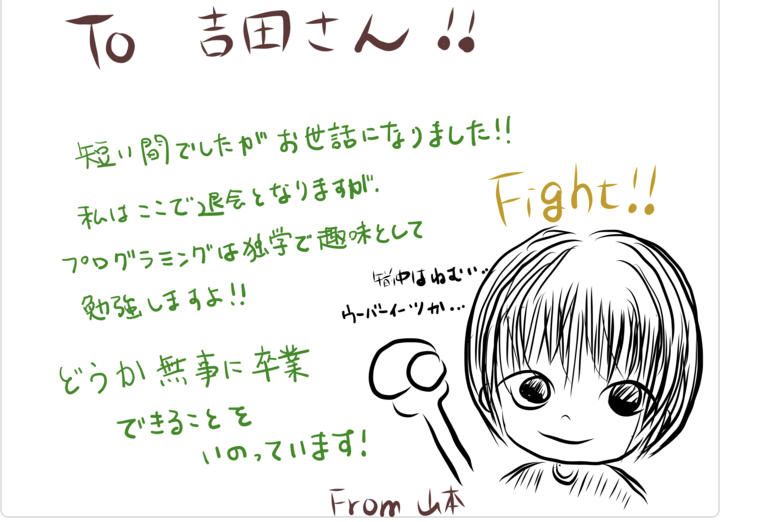 To 吉田さん!!
短い間でしたがお世話になりました!!
私はここで退会となりますが.
プログラミングは独学で趣味として
勉強しますよ!!
どうか無事に卒業
できることを
いのっています!
Fight!!
はねむい…
ウーバーイーツか…
From 山本